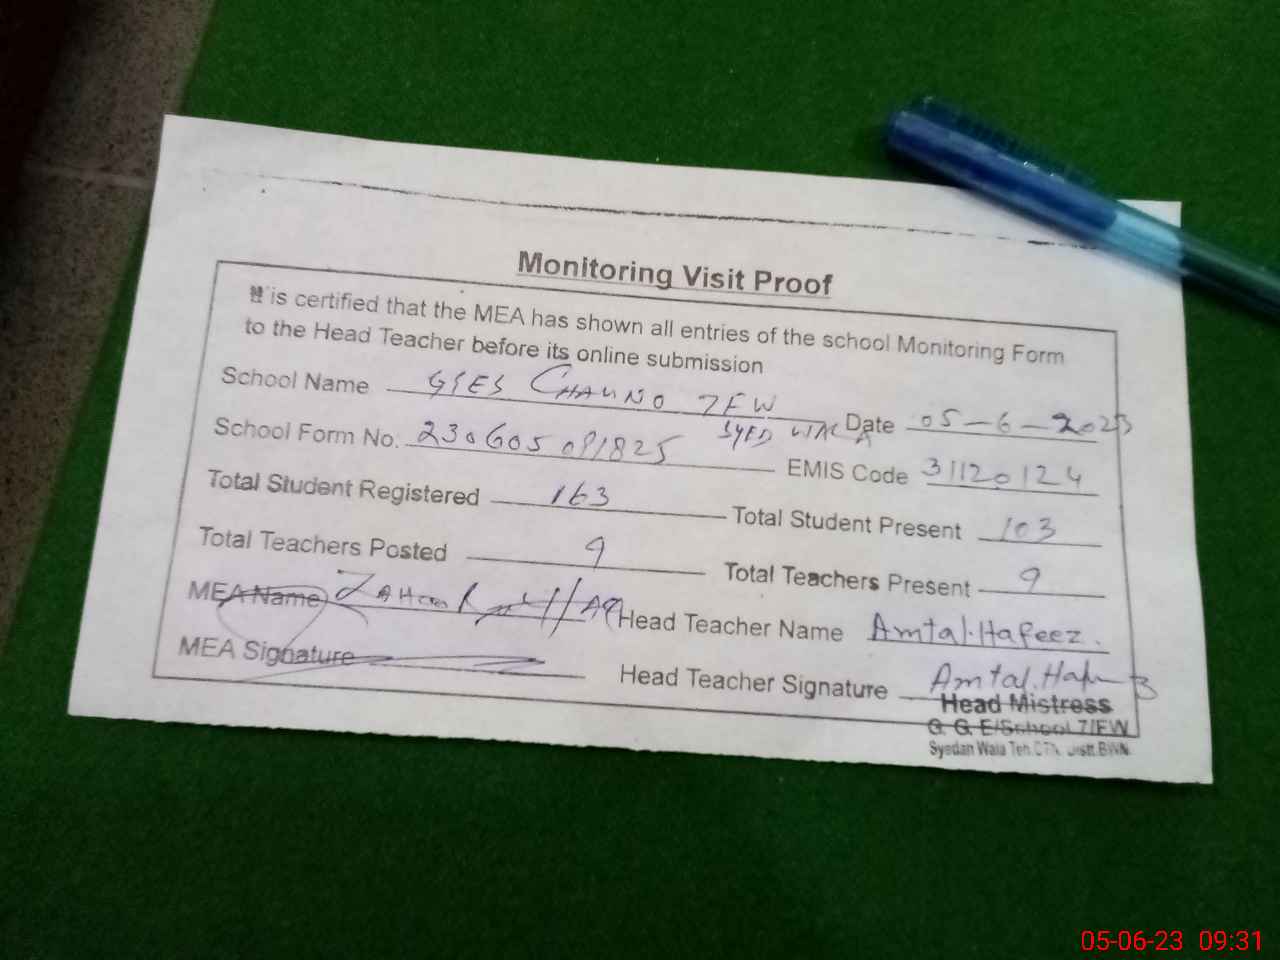 Monitoring Visit Proof
It is certified that the MEA has shown all entries of the school Monitoring Form
to the Head Teacher before its online submission
School Name GGES CHAK NO 7FW Date 05-6-2023
SYED WALA
School Form No. 230605091825 EMIS Code 31120124
Total Student Registered 163 Total Student Present 103
Total Teachers Posted 9 Total Teachers Present 9
MEA Name Head Teacher Name Amtal.Hafeez.
MEA Signature Head Teacher Signature Amtal.Hafeez
Head Mistress
G. G. E/School 7/FW
Syedan Wala Teh.CTN. Distt.BWN.
05-06-23 09:31